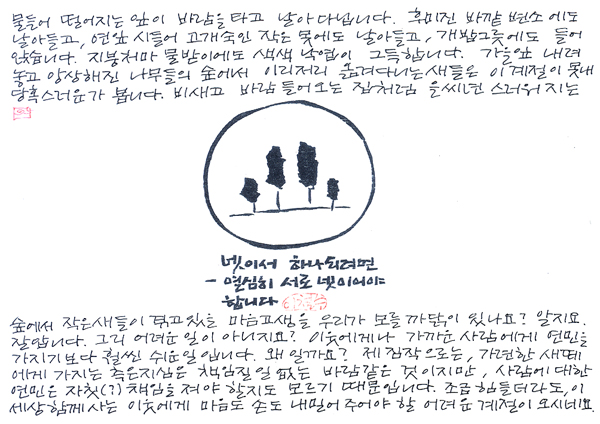 물들어 떨어지는 잎이 바람을 타고 날아 다닙니다. 후미진 바깥 변소에도
날아들고, 연잎 시들어 고개숙인 작은 못에도 날아들고, 개밥그릇에도 들어
앉습니다. 지붕처마 물받이에도 색색 낙엽이 그득합니다. 가을잎 내려
놓고 앙상해진 나무들의 숲에서 이리저리 옮겨다니는 새들은 이 계절이 못내
당혹스러운가 봅니다. 비새고 바람 들어오는 집처럼 을씨년스러워지는
넷이서 하나되려면
- 열심히 서로 넷이어야
합니다
숲에서 작은새들이 겪고있을 마음고생을 우리가 모를 까닭이 있나요? 알지요.
잘 압니다. 그리 어려운 일이 아니지요? 이웃에게나 가까운 사람에게 연민을
가지기보다 훨씬 쉬운일입니다. 왜 일까요? 제 짐작으로는, 가련한 새떼
에게 가지는 측은지심은 책임질일 없는 바람같은 것이지만, 사람에 대한
연민은 자칫(?) 책임을 져야 할지도 모르기 때문입니다. 조금 힘들더라도, 이
세상 함께 사는 이웃에게 마음도 손도 내밀어 주어야 할 어려운 계절이 오시네요.